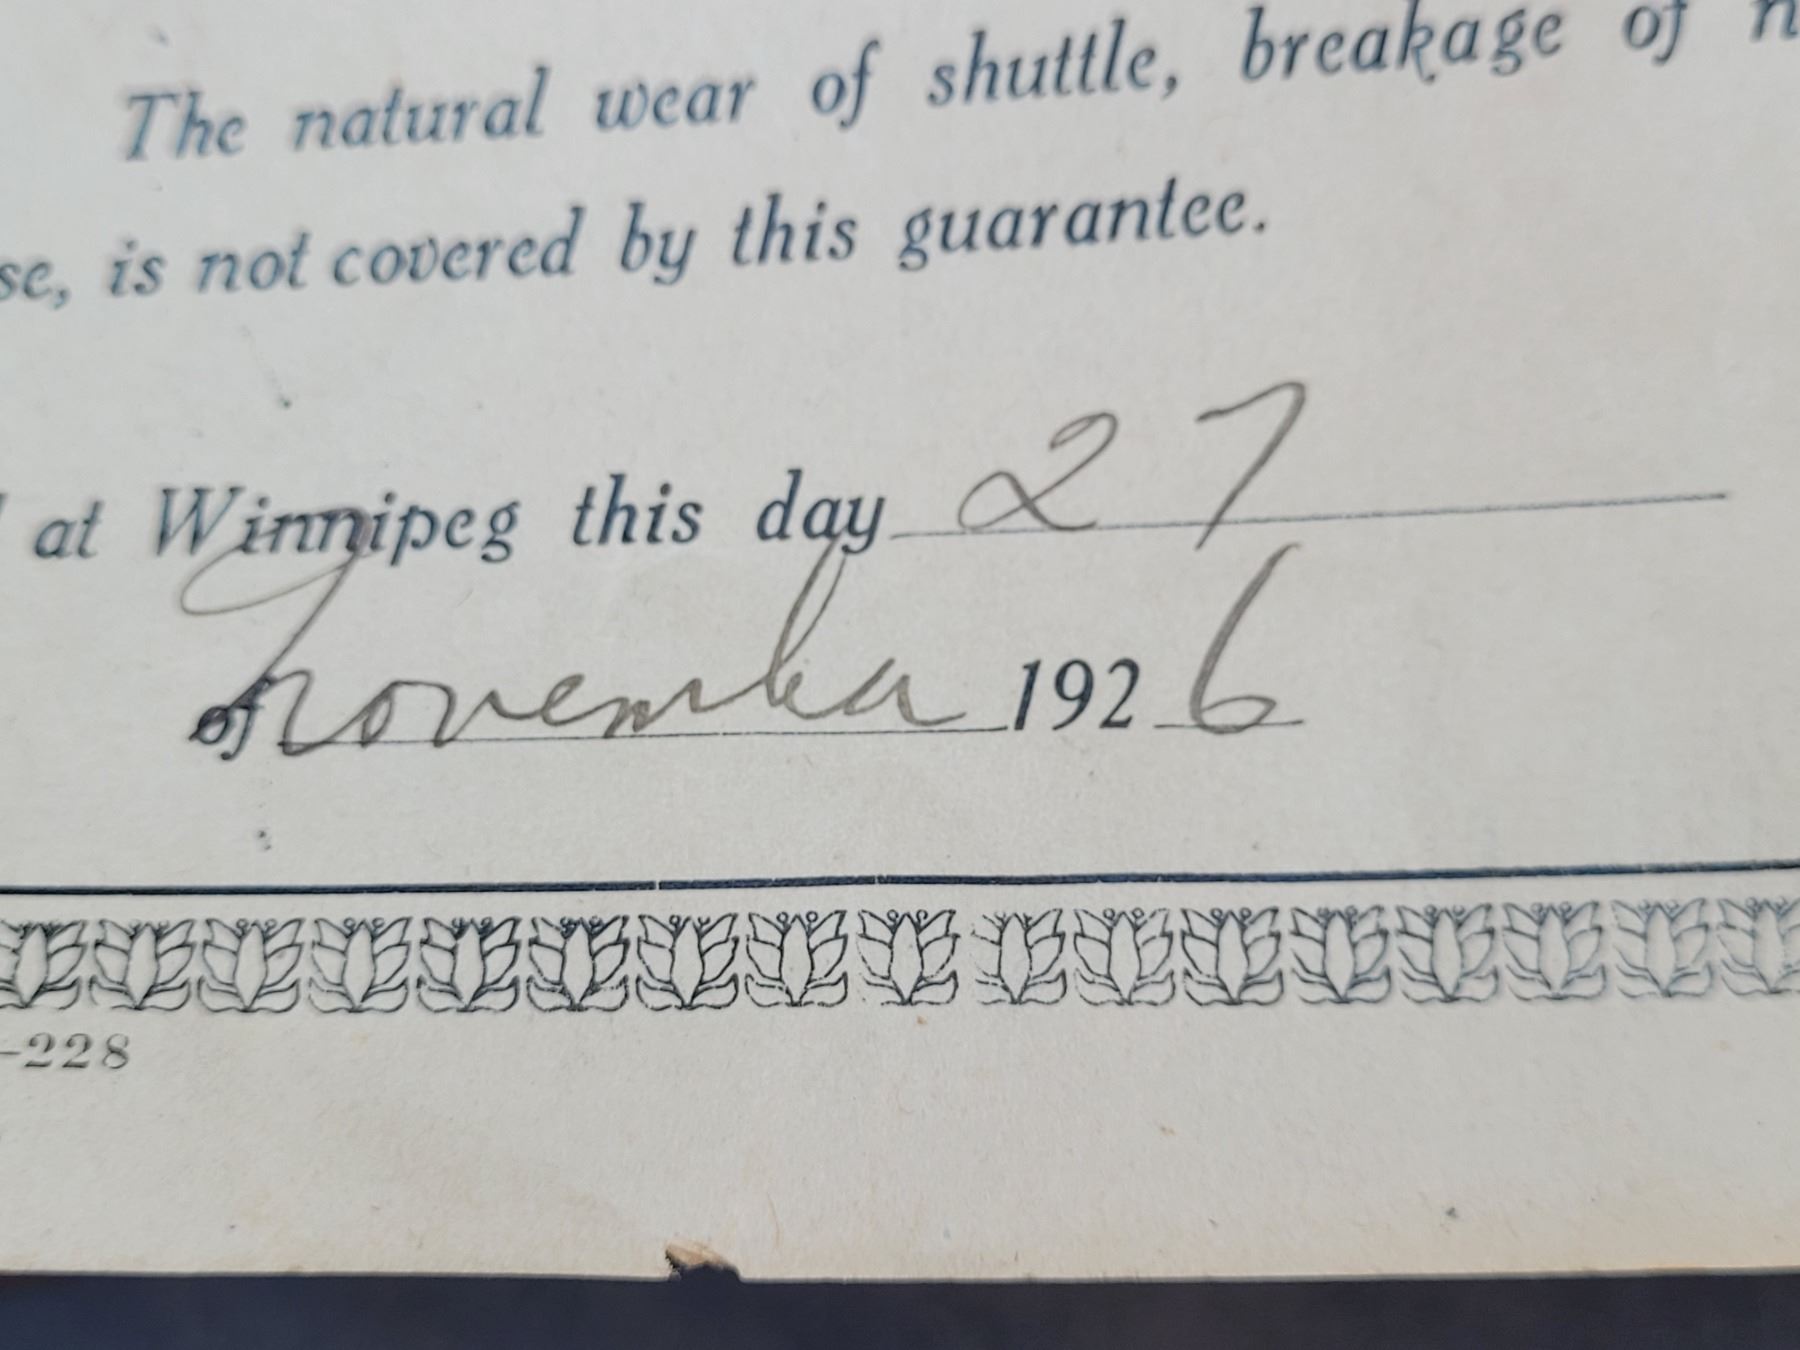 The natural wear of shuttle, breakage of n
se, is not covered by this guarantee.
at Winnipeg this day 27
of November 1926
-228